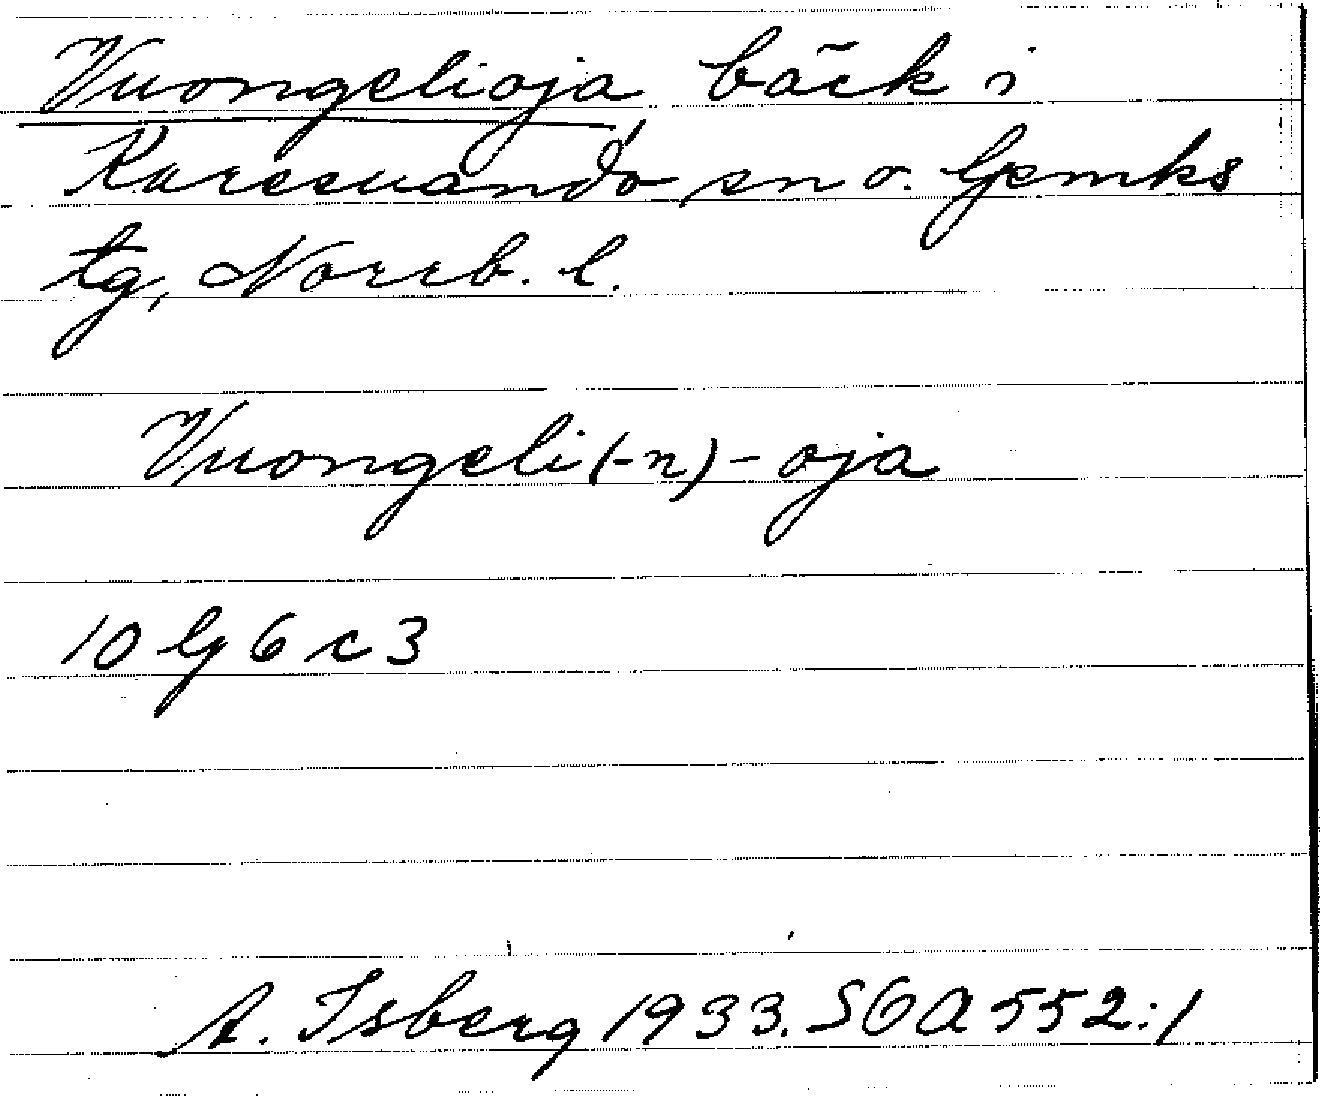 Vuongelioja bäck i
Karesuando sn o. Gemks
tg, Norrb. l.
Vuongeli(-n)-oja
10 G 6 c 3
A. Isberg 1933. SOA 552:1